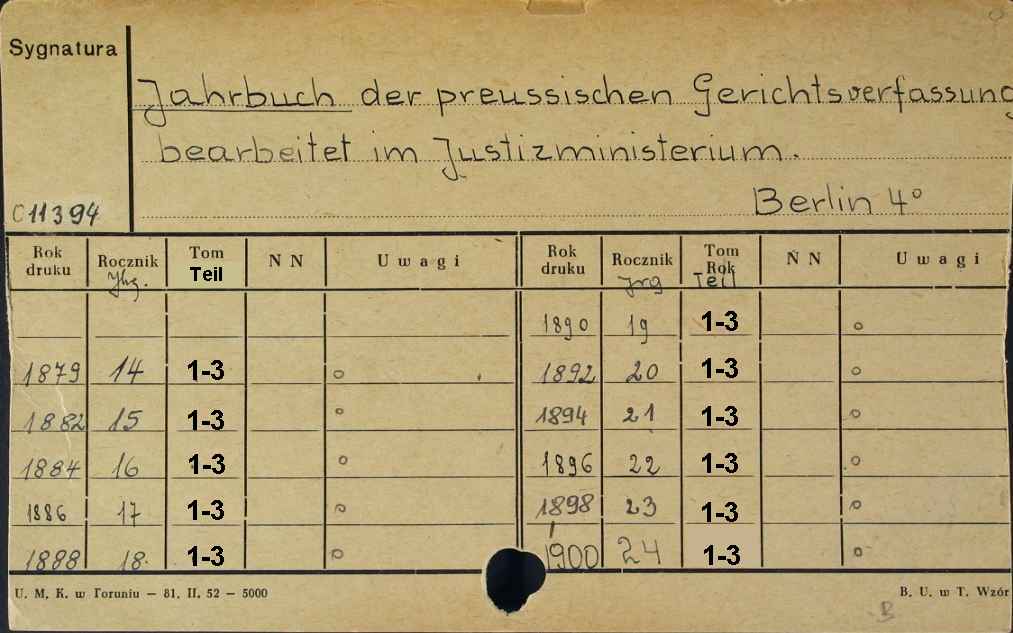 Sygnatura
Jahrbuch der preussischen Gerichtsverfassung
bearbeitet im Justizministerium.
Berlin 4°
C 11394
Rok druku Rocznik Jhg. Tom Teil N N U w a g i
1879 14 1-3 °
1882 15 1-3 °
1884 16 1-3 °
1886 17 1-3 °
1888 18. 1-3 °
Rok druku Rocznik Jrg Tom Rok Teil N N U w a g i
1890 19 1-3 °
1892 20 1-3 °
1894 21 1-3 °
1896 22 1-3 °
1898 23 1-3 °
1900 24 1-3 °
U. M. K. w Toruniu — 81. II. 52 — 5000
B. U. w T. Wzór
B